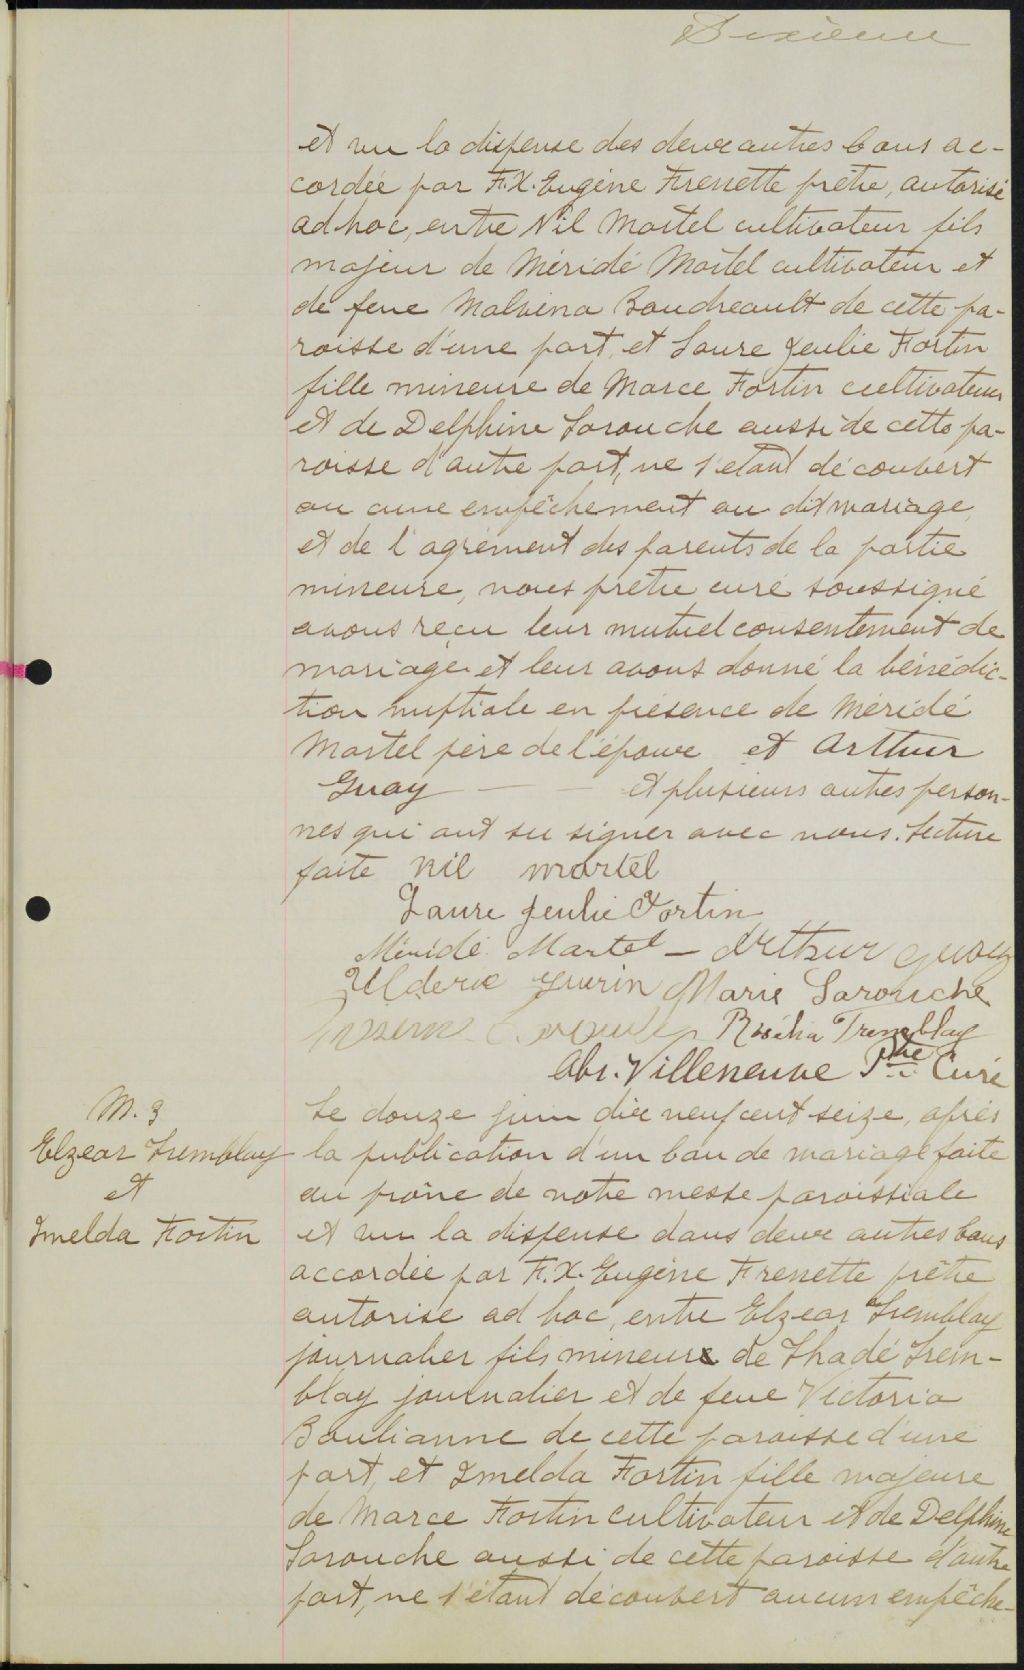 Dixième
et vu la dispense des deux autres bans ac-
cordée par F.X. Eugène Frenette prêtre, autorisé
ad hoc, entre Nil Martel cultivateur fils
majeur de Méridé Martel cultivateur et
de feue Malvina Boudreault de cette pa-
roisse d'une part, et Laure Jeulie Fortin
fille mineure de Marce Fortin cultivateur
et de Delphine Larouche aussi de cette pa-
roisse d'autre part, ne s'étant découvert
au cune empêchement au dit mariage,
et de l'agrément des parents de la partie
mineure, nous prêtre curé soussigné
avons reçu leur mutuel consentement de
mariage et leur avons donné la bénédic-
tion nuptiale en présence de Méridé
Martel père de l'époux et Arthur
Guay — — et plusieurs autres person-
nes qui ont su signer avec nous. Lecture
faite Nil Martel
Laure Jeulie Fortin
Méridé Martel — Arthur Guay
Ulderic Marie Larouche
Rosélia Tremblay
Abr. Villeneuve Ptre Curé
M. 3
Elzear Tremblay
et
Imelda Fortin
Le douze juin dix neuf cent seize, après
la publication d'un ban de mariage faite
au prône de notre messe paroissiale
et vu la dispense dans deux autres bans
accordée par F.X. Eugène Frenette prêtre
autorise ad hoc, entre Elzear Tremblay
journalier fils mineur de Thadé Trem-
blay journalier et de feue Victoria
Boulianne de cette paroisse d'une
part, et Imelda Fortin fille majeure
de Marce Fortin cultivateur et de Delphine
Larouche aussi de cette paroisse d'autre
part, ne s'étant découvert aucun empêche-